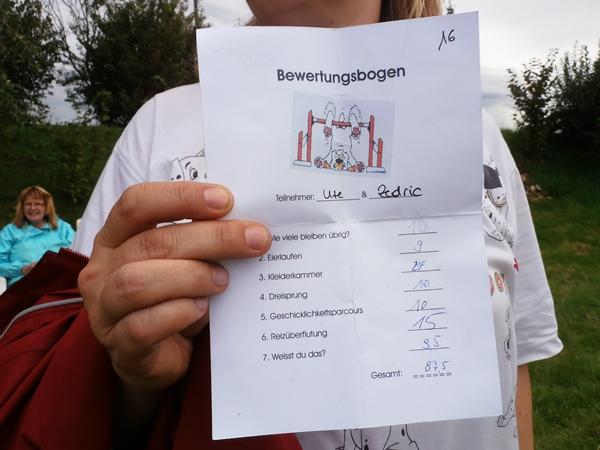 16
Bewertungsbogen
Teilnehmer: Ute & Zedric
Wie viele bleiben übrig? 10
2. Eierlaufen 9
3. Kleiderkammer 24
4. Dreisprung 10
5. Geschicklichkeitsparcours 10
6. Reizüberflutung 15
7. Weisst du das? 9,5
Gesamt: 87,5